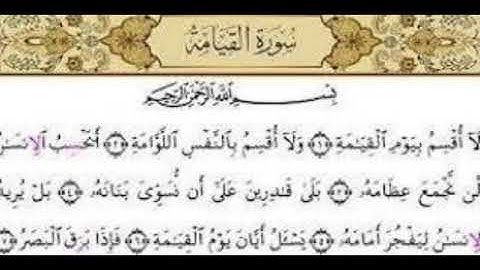 سُورَةُ القِيَامَةِ
بِسْمِ اللَّهِ الرَّحْمَٰنِ الرَّحِيمِ
لَآ أُقْسِمُ بِيَوْمِ الْقِيَٰمَةِ ﴿١﴾ وَلَآ أُقْسِمُ بِالنَّفْسِ اللَّوَّامَةِ ﴿٢﴾ أَيَحْسَبُ الْإِنسَٰنُ
أَلَّن نَّجْمَعَ عِظَامَهُۥ ﴿٣﴾ بَلَىٰ قَٰدِرِينَ عَلَىٰٓ أَن نُّسَوِّىَ بَنَانَهُۥ ﴿٤﴾ بَلْ يُرِيدُ
الْإِنسَٰنُ لِيَفْجُرَ أَمَامَهُۥ ﴿٥﴾ يَسْـَٔلُ أَيَّانَ يَوْمُ الْقِيَٰمَةِ ﴿٦﴾ فَإِذَا بَرِقَ الْبَصَرُ ﴿٧﴾